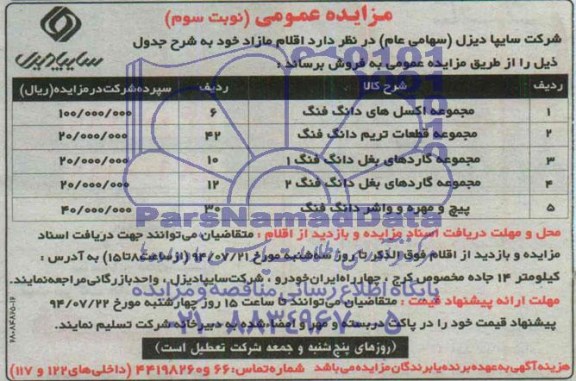 مزایده عمومی (نوبت سوم)
سایپا دیزل
شرکت سایپا دیزل (سهامی عام) در نظر دارد اقلام مازاد خود به شرح جدول
ذیل را از طریق مزایده عمومی به فروش برساند :
ردیف شرح کالا ردیف سپرده شرکت در مزایده (ریال)
۱ مجموعه اکسل های دانگ فنگ ۶ ۱۰۰/۰۰۰/۰۰۰
۲ مجموعه قطعات تریم دانگ فنگ ۴۲ ۲۰/۰۰۰/۰۰۰
۳ مجموعه گاردهای بغل دانگ فنگ ۱ ۱۰ ۲۰/۰۰۰/۰۰۰
۴ مجموعه گاردهای بغل دانگ فنگ ۲ ۱۲ ۲۰/۰۰۰/۰۰۰
۵ پیچ و مهره و واشر دانگ فنگ ۳۰ ۴۰/۰۰۰/۰۰۰
ParsNamadData
محل و مهلت دریافت اسناد مزایده و بازدید از اقلام : متقاضیان می‌توانند جهت دریافت اسناد
مزایده و بازدید از اقلام فوق‌الذکر تا روز سه‌شنبه مورخ ۹۴/۰۷/۲۱ (از ساعت ۸ تا ۱۵) به آدرس :
کیلومتر ۱۴ جاده مخصوص کرج ، جهاره ایران خودرو ، شرکت سایپا دیزل، واحد بازرگانی مراجعه نمایند.
پایگاه اطلاع رسانی مناقصه و مزایده
مهلت ارائه پیشنهاد قیمت : متقاضیان می‌توانند تا ساعت ۱۵ روز چهارشنبه مورخ ۹۴/۰۷/۲۲
پیشنهاد قیمت خود را در پاکت دربسته و مهر و امضاء شده به دبیرخانه شرکت تسلیم نمایند.
۰۲۱-۸۸۳۴۹۶۷۰-۵
(روزهای پنج شنبه و جمعه شرکت تعطیل است)
هزینه آگهی به عهده برنده یا برندگان مزایده می‌باشد شماره تماس: ۶۶ و ۴۴۱۹۸۲۶۰ (داخلی های ۱۲۲ و ۱۱۷)